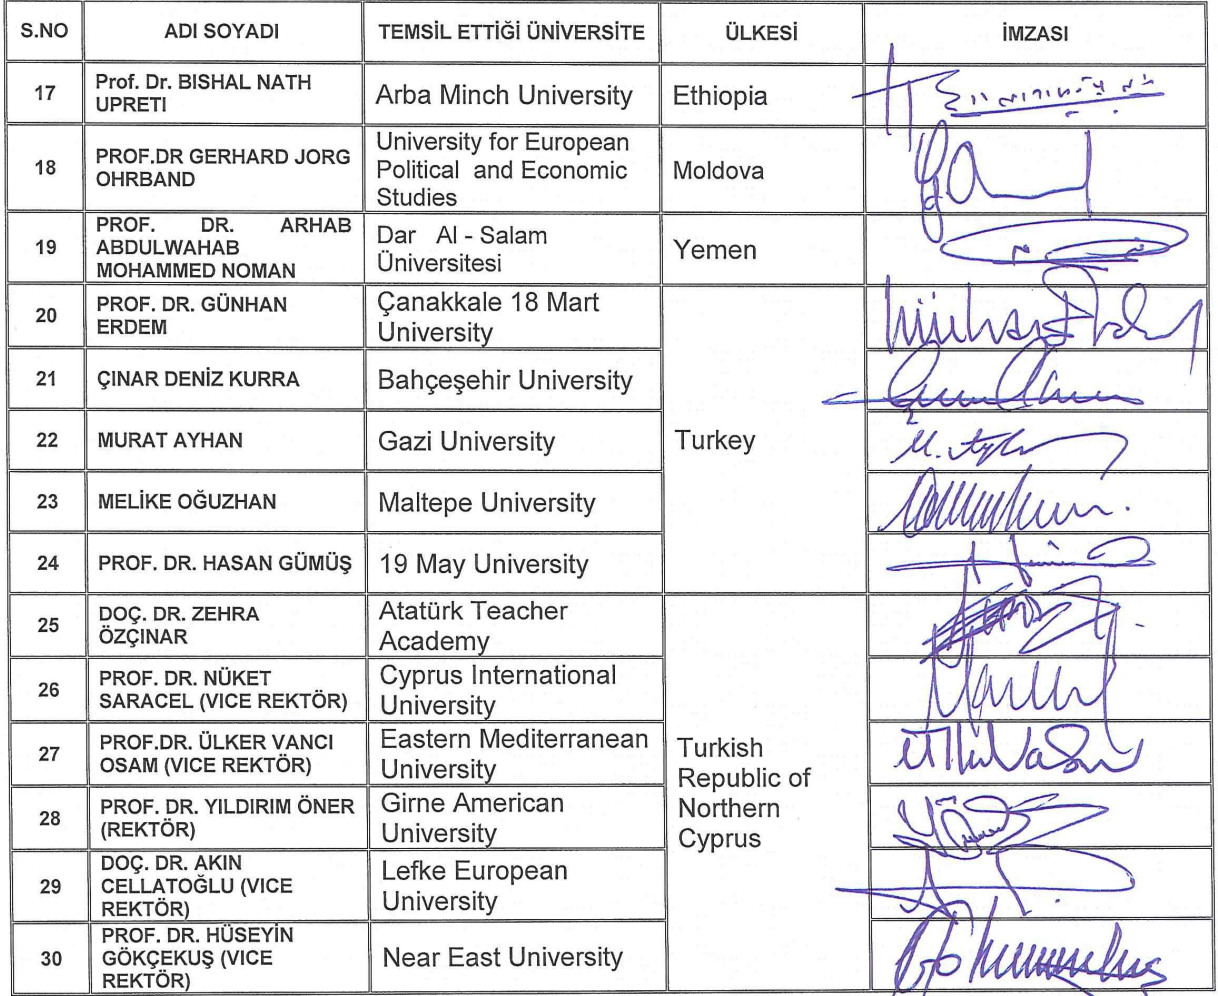 S.NO ADI SOYADI TEMSİL ETTİĞİ ÜNİVERSİTE ÜLKESİ İMZASI
17 Prof. Dr. BISHAL NATH
UPRETI
Arba Minch University
Ethiopia
18 PROF.DR GERHARD JORG
OHRBAND
University for European
Political and Economic
Studies
Moldova
19 PROF. DR. ARHAB
ABDULWAHAB
MOHAMMED NOMAN
Dar Al - Salam
Üniversitesi
Yemen
20 PROF. DR. GÜNHAN
ERDEM
Çanakkale 18 Mart
University
21 ÇINAR DENİZ KURRA
Bahçeşehir University
22 MURAT AYHAN
Gazi University
Turkey
23 MELİKE OĞUZHAN
Maltepe University
24 PROF. DR. HASAN GÜMÜŞ
19 May University
25 DOÇ. DR. ZEHRA
ÖZÇINAR
Atatürk Teacher
Academy
26 PROF. DR. NÜKET
SARACEL (VICE REKTÖR)
Cyprus International
University
27 PROF.DR. ÜLKER VANCI
OSAM (VICE REKTÖR)
Eastern Mediterranean
University
Turkish
Republic of
Northern
Cyprus
28 PROF. DR. YILDIRIM ÖNER
(REKTÖR)
Girne American
University
29 DOÇ. DR. AKIN
CELLATOĞLU (VICE
REKTÖR)
Lefke European
University
30 PROF. DR. HÜSEYİN
GÖKÇEKUŞ (VICE
REKTÖR)
Near East University